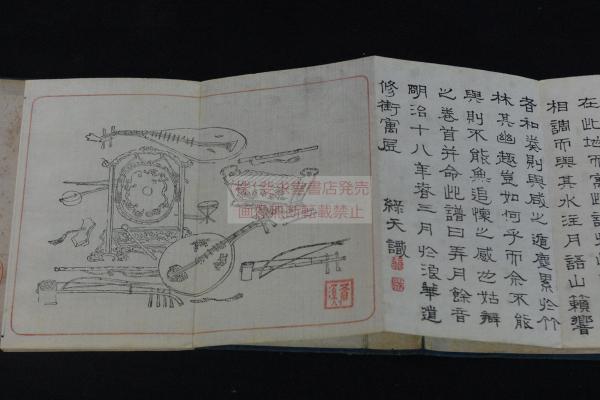 在此地而寓此
相調而與其水注月語山籟響
者和奏則興感之遁塵累於竹
林其幽趣豈如何乎而余不能
無追懷之感也姑
之卷首并命此譜曰弄月餘音
明治十八年春三月於浪華道
修街寓居
綠天識
株)衆水堂書店発売
画像無断転載禁止